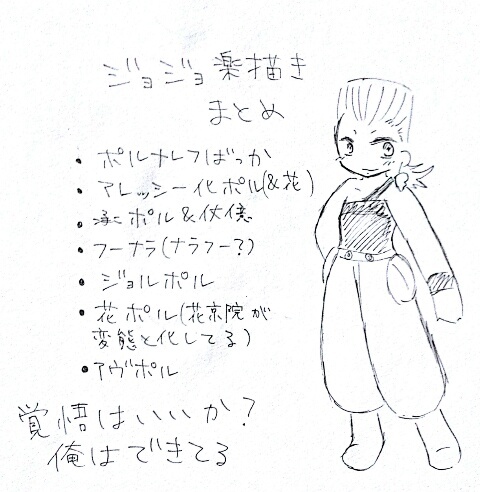 ジョジョ楽描き
まとめ
・ポルナレフばっか
・アレッシー化ポル(&花)
・承ポル&仗億
・フーナラ(ナラフー?)
・ジョルポル
・花ポル(花京院が
変態と化してる)
・アヴポル
覚悟はいいか?
俺はできてる